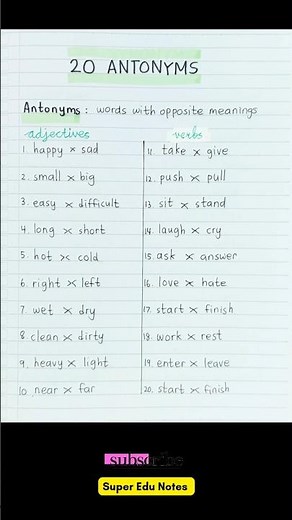 20 ANTONYMS
Antonyms : words with opposite meanings
adjectives
1. happy × sad
2. small × big
3. easy × difficult
4. long × short
5. hot × cold
6. right × left
7. wet × dry
8. clean × dirty
9. heavy × light
10. near × far
verbs
11. take × give
12. push × pull
13. sit × stand
14. laugh × cry
15. ask × answer
16. love × hate
17. start × finish
18. work × rest
19. enter × leave
20. start × finish
subscribe
Super Edu Notes